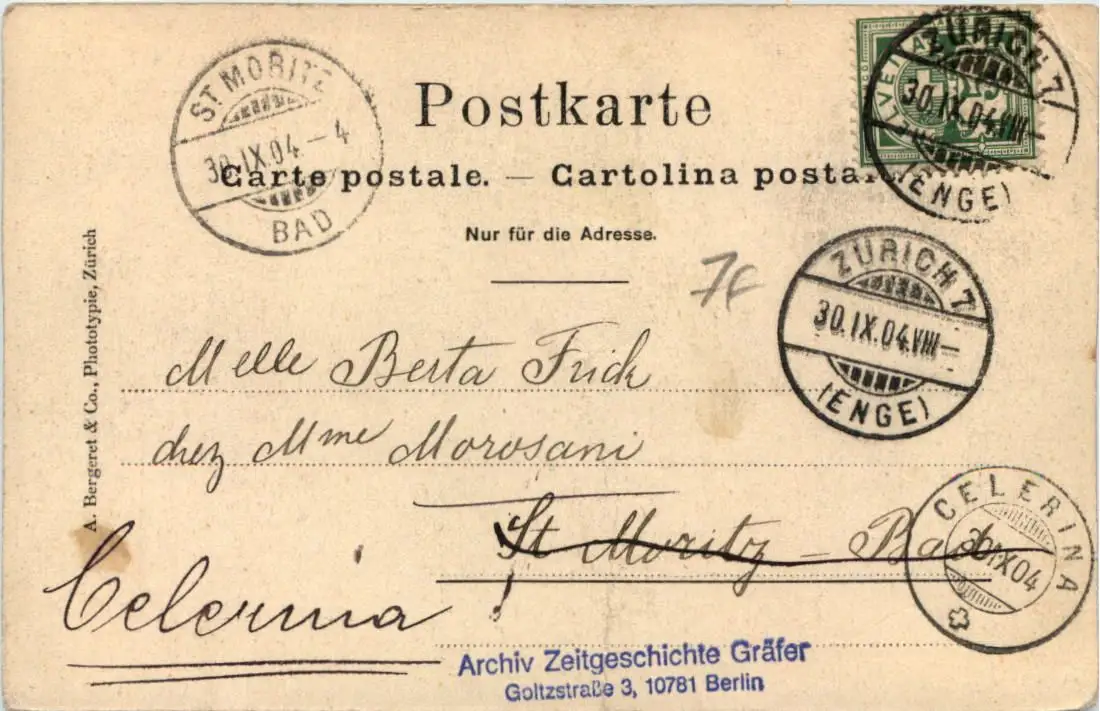 Postkarte
Carte postale. — Cartolina posta
Nur für die Adresse.
ST MORITZ
30.IX.04 – 4
BAD
ZÜRICH 7
30.IX.04.VIII–
(ENGE)
ZÜRICH 7
30.IX.04.VIII–
(ENGE)
A. Bergeret & Co., Phototypie, Zürich
Melle Berta Frick
chez Mme Morosani
St Moritz – Bad
Celerina !
CELERINA
30.IX.04
Archiv Zeitgeschichte Gräfer
Goltzstraße 3, 10781 Berlin